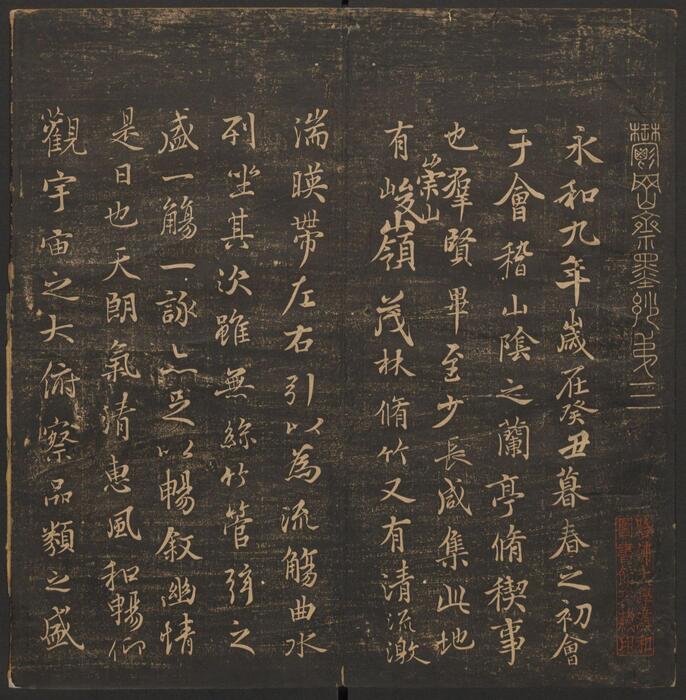 鬱岡齋墨妙第三
永和九年歲在癸丑暮春之初會
于會稽山陰之蘭亭脩稧事
也羣賢畢至少長咸集此地
有崇山峻嶺茂林脩竹又有清流激
湍暎帶左右引以為流觴曲水
列坐其次雖無絲竹管弦之
盛一觴一詠亦足以暢叙幽情
是日也天朗氣清惠風和暢仰
觀宇宙之大俯察品類之盛